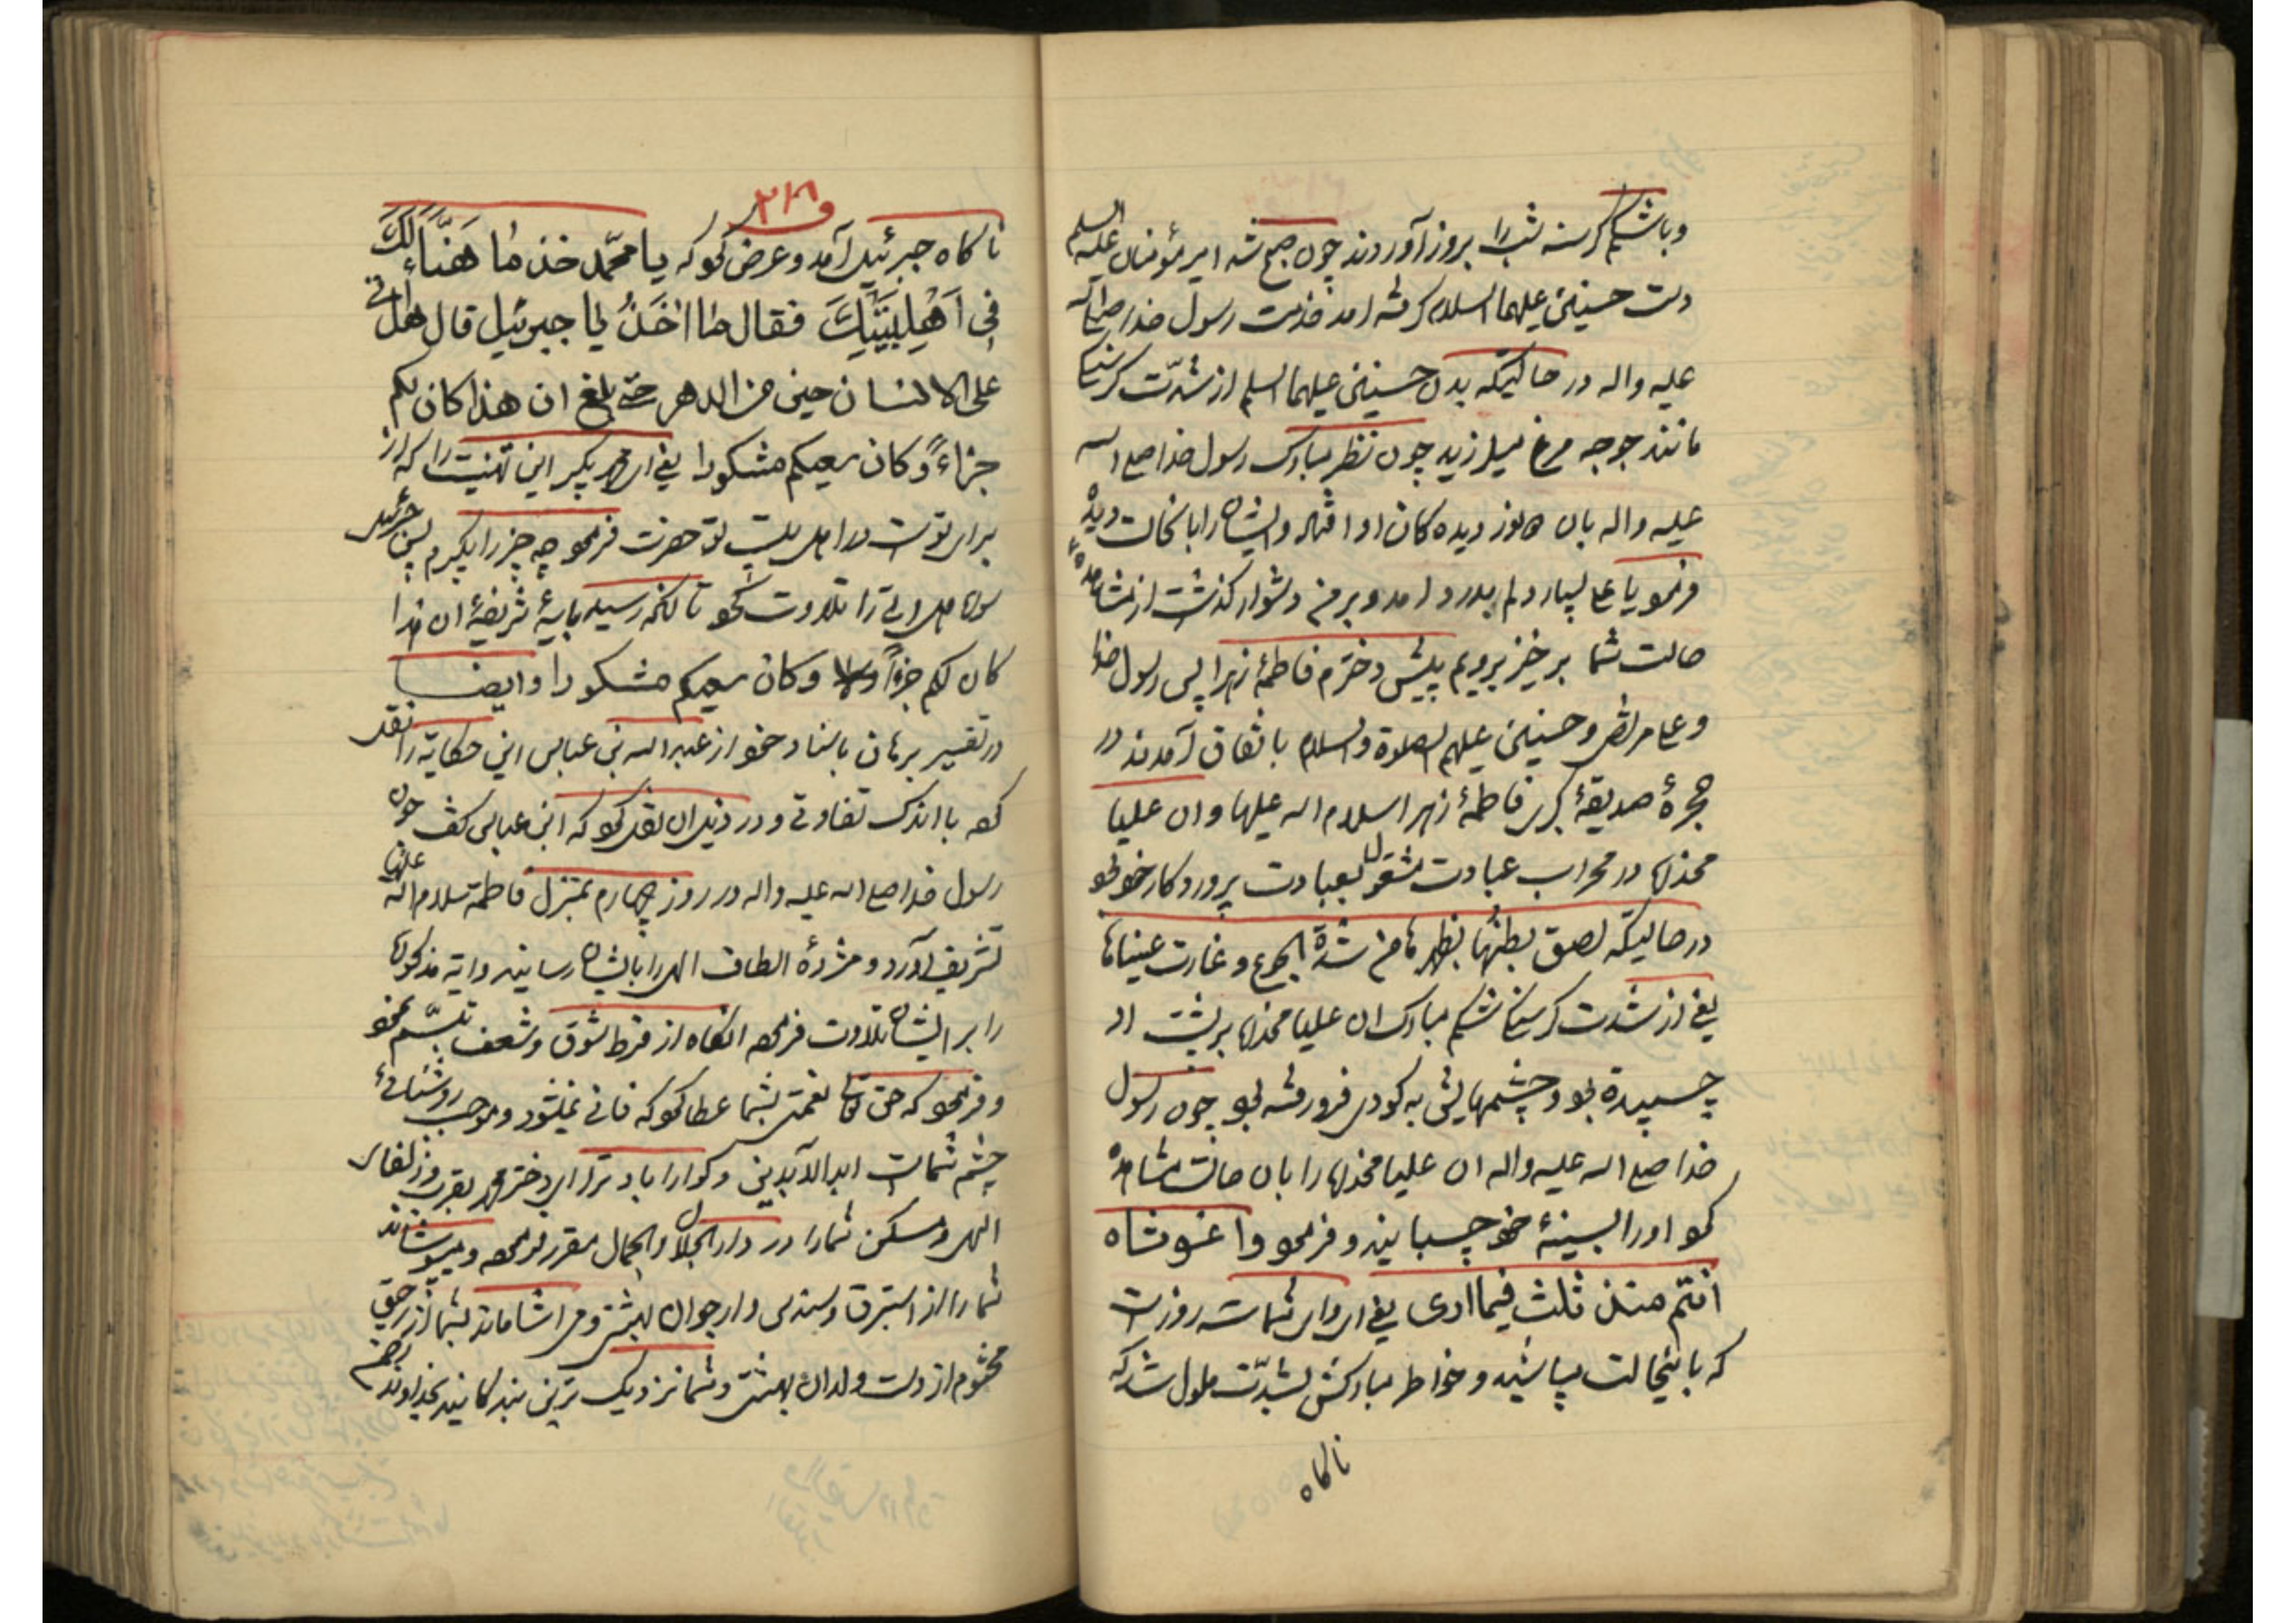 و باشکم گرسنه شب را بروز آوردند چون صبح شد امیر مؤمنان علیه السلم
دست حسنین علیهما السلام گرفته آمد خدمت رسول خدا صلی اله
علیه واله در حالتیکه بدن حسنین علیهما السلم از شدّت گرسنگی
مانند جوجه مرغ میلرزید چون نظر مبارک رسول خدا صلی اله
علیه واله بان دو نور دیده گان او افتاد و ایشان را بانحالت دید
فرمود یا علی بسیار دلم بدرد آمد و بر من دشوار گذشت از مشاهدهٔ
حالت شما برخیز برویم پیش دخترم فاطمهٔ زهرا پس رسول خدا
و علی مرتضی و حسنین علیهم الصلوة والسلام باتفاق آمدند در
حجرهٔ صدیقهٔ کبری فاطمهٔ زهرا سلام اله علیها و ان علیا
مخدره در محراب عبادت مشغول بعبادت پروردگار خود بود
در حالیکه لصق بطنها بظهرها من شدّة الجوع و غارت عیناها
یعنی از شدت گرسنگی شکم مبارک ان علیا مخدره بر پشت او
چسبیده بود و چشمهایش به گودی فرو رفته بود چون رسول
خدا صلی اله علیه واله ان علیا مخدره را بان حالت مشاهده
نمود او را بسینهٔ خود چسبانید و فرمود وا غوثاه
انتم منذ ثلث فیما اری یعنی ای وای شما سه روز است
که باینحالت میباشید و خواطر مبارکش بشدّت ملول شد که
ناگاه
۲۱۸
ناگاه جبرئیل آمد و عرض نمود که یا محمّد خذ ما هَنّأَ لَکَ
فی اَهْلِبَیْتِکَ فقال ما اٰخُذُ یا جبرئیل قال هل اتی
علی الانسان حین من الدهر حتی بلغ ان هذا کان لکم
جزاءً و کان سعیکم مشکورا یعنی ای محمد بگیر این تهنیت را که از
برای تو است در اهل بیت تو حضرت فرمود چه چیز را بگیرم پس جبرئیل
سورهٔ هل اتی را تلاوت نمود تا آنکه رسید بایهٔ شریفهٔ ان هذا
کان لکم جزاءً و کان سعیکم مشکورا و ایضا
در تفسیر برهان باسناد خود از عبد اله بن عباس این حکایة را نقل
کرده با اندک تفاوتی و در ذیل ان نقل نمود که ابن عباس گفت چون
رسول خدا صلی اله علیه واله در روز چهارم بمنزل فاطمة سلام اله علیها
تشریف آورد و مژدهٔ الطاف الهی را بایشان رسانید و ایه مذکوره
را بر ایشان تلاوت فرمود انگاه از فرط شوق و شعف تبسّم نمود
و فرمود که حق تعالی نعمتی بشما عطا نمود که فانی نمیشود و موجب روشنائی
چشم شماست ابد الآبدین و گوارا باد ترا ای دختر محمد بقرب وزلفای
الهی و مسکن شما را در دار الجلال والجمال مقرر فرموده و میپوشاند
شما را از استبرق و سندس و ارجوان بهشتی و می اشاماند بشما از رحیق
مختوم از دست ولدان بهشتی و شما نزدیک ترین بندگانید بخداوند رحیم